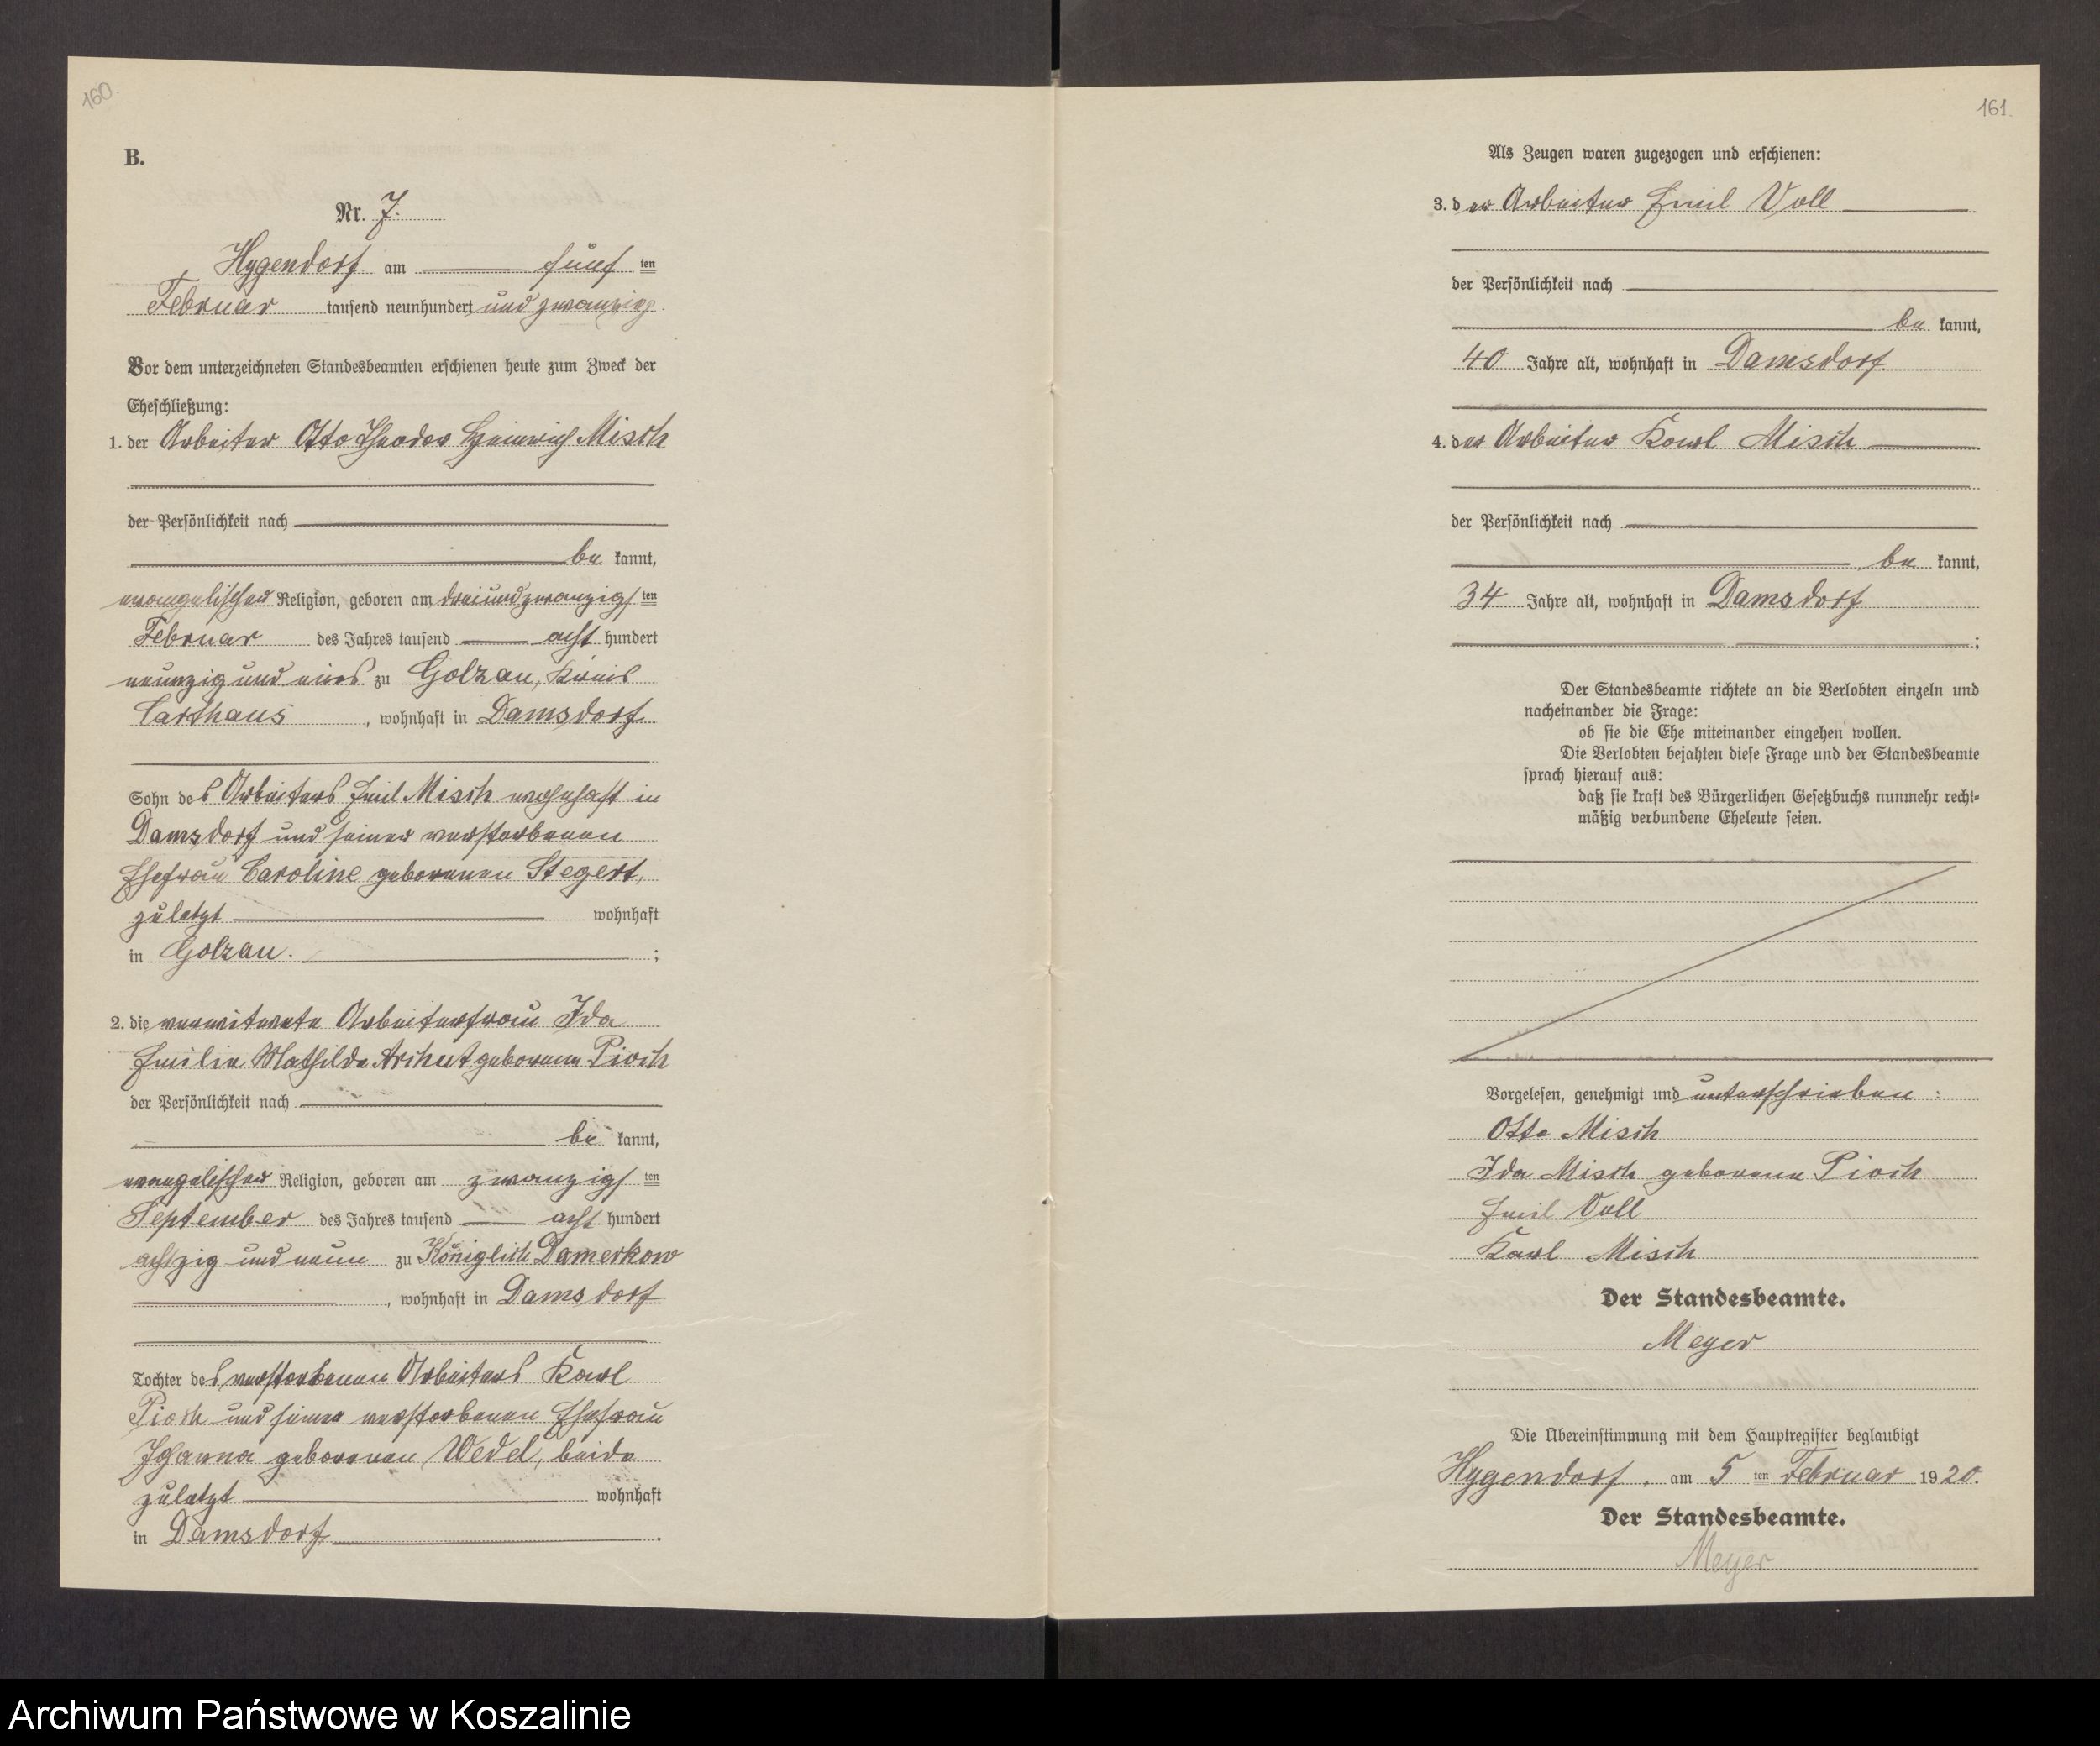 160.
B.
Nr. 7.
Hygendorf am fünf ten
Februar tausend neunhundert und zwanzig.
Vor dem unterzeichneten Standesbeamten erschienen heute zum Zweck der
Eheschließung:
1. der Arbeiter Otto Theodor Heinrich Misch
der Persönlichkeit nach
be kannt,
evangelischer Religion, geboren am dreiundzwanzigs ten
Februar des Jahres tausend acht hundert
neunzig und eins zu Golzau, Kreis
Carthaus, wohnhaft in Damsdorf
Sohn des Arbeiters Emil Misch wohnhaft in
Damsdorf und seiner verstorbenen
Ehefrau Caroline geborenen Stegert,
zuletzt wohnhaft
in Golzau. ;
2. die verwitwete Arbeiterfrau Ida
Emilie Mathilde Archut geborene Pioch
der Persönlichkeit nach
be kannt,
evangelischer Religion, geboren am zwanzigs ten
September des Jahres tausend acht hundert
achtzig und neun zu Königlich Damerkow
, wohnhaft in Damsdorf
Tochter des verstorbenen Arbeiters Karl
Pioch und seiner verstorbenen Ehefrau
Johanna geborenen Wedel, beide
zuletzt wohnhaft
in Damsdorf .
161.
Als Zeugen waren zugezogen und erschienen:
3. der Arbeiter Emil Voll
der Persönlichkeit nach
be kannt,
40 Jahre alt, wohnhaft in Damsdorf
4. der Arbeiter Karl Misch
der Persönlichkeit nach
be kannt,
34 Jahre alt, wohnhaft in Damsdorf
;
Der Standesbeamte richtete an die Verlobten einzeln und
nacheinander die Frage:
ob sie die Ehe miteinander eingehen wollen.
Die Verlobten bejahten diese Frage und der Standesbeamte
sprach hierauf aus:
daß sie kraft des Bürgerlichen Gesetzbuchs nunmehr recht-
mäßig verbundene Eheleute seien.
Vorgelesen, genehmigt und unterschrieben :
Otto Misch
Ida Misch geborene Pioch
Emil Voll
Karl Misch
Der Standesbeamte.
Meyer
Die Übereinstimmung mit dem Hauptregister beglaubigt
Hygendorf, am 5 ten Februar 1920.
Der Standesbeamte.
Meyer
Archiwum Państwowe w Koszalinie